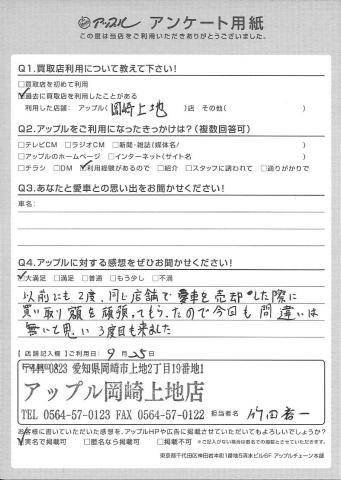 アップル アンケート用紙
この度は当店をご利用いただきありがとうございました。
Q1.買取店利用について教えて下さい!
□買取店を初めて利用
☑過去に買取店を利用したことがある
利用した店舗: アップル(岡崎上地)店 その他( )
Q2.アップルをご利用になったきっかけは?(複数回答可)
□テレビCM □ラジオCM □新聞・雑誌(媒体名/ )
□アップルのホームページ □インターネット(サイト名 )
□チラシ □DM ☑利用経験があるので □紹介 □スタッフに誘われて □通りがかりで
Q3.あなたと愛車との思い出をお聞かせください!
車名:
Q4.アップルに対する感想をぜひお聞かせください!
☑大満足 □満足 □普通 □もう少し □不満
以前にも2度、同じ店舗で愛車を売却した際に
買い取り額を頑張ってもらったので今回も間違いは
無いて思い3度目も来ました
【店舗記入欄】ご利用日: 9月25日
〒444-0823 愛知県岡崎市上地2丁目19番地1
アップル岡崎上地店
TEL 0564-57-0123 FAX 0564-57-0122
担当者名 竹田
お客様に書いていただいた感想を、アップルHPや広告に掲載させていただいてもよろしいでしょうか?
☑実名で掲載可 □匿名なら掲載可 □掲載不可 ※ご記入がない場合は掲載可での処理とさせていただきます。
東京都千代田区神田岩本町1番地5清水ビル6F アップルチェーン本部